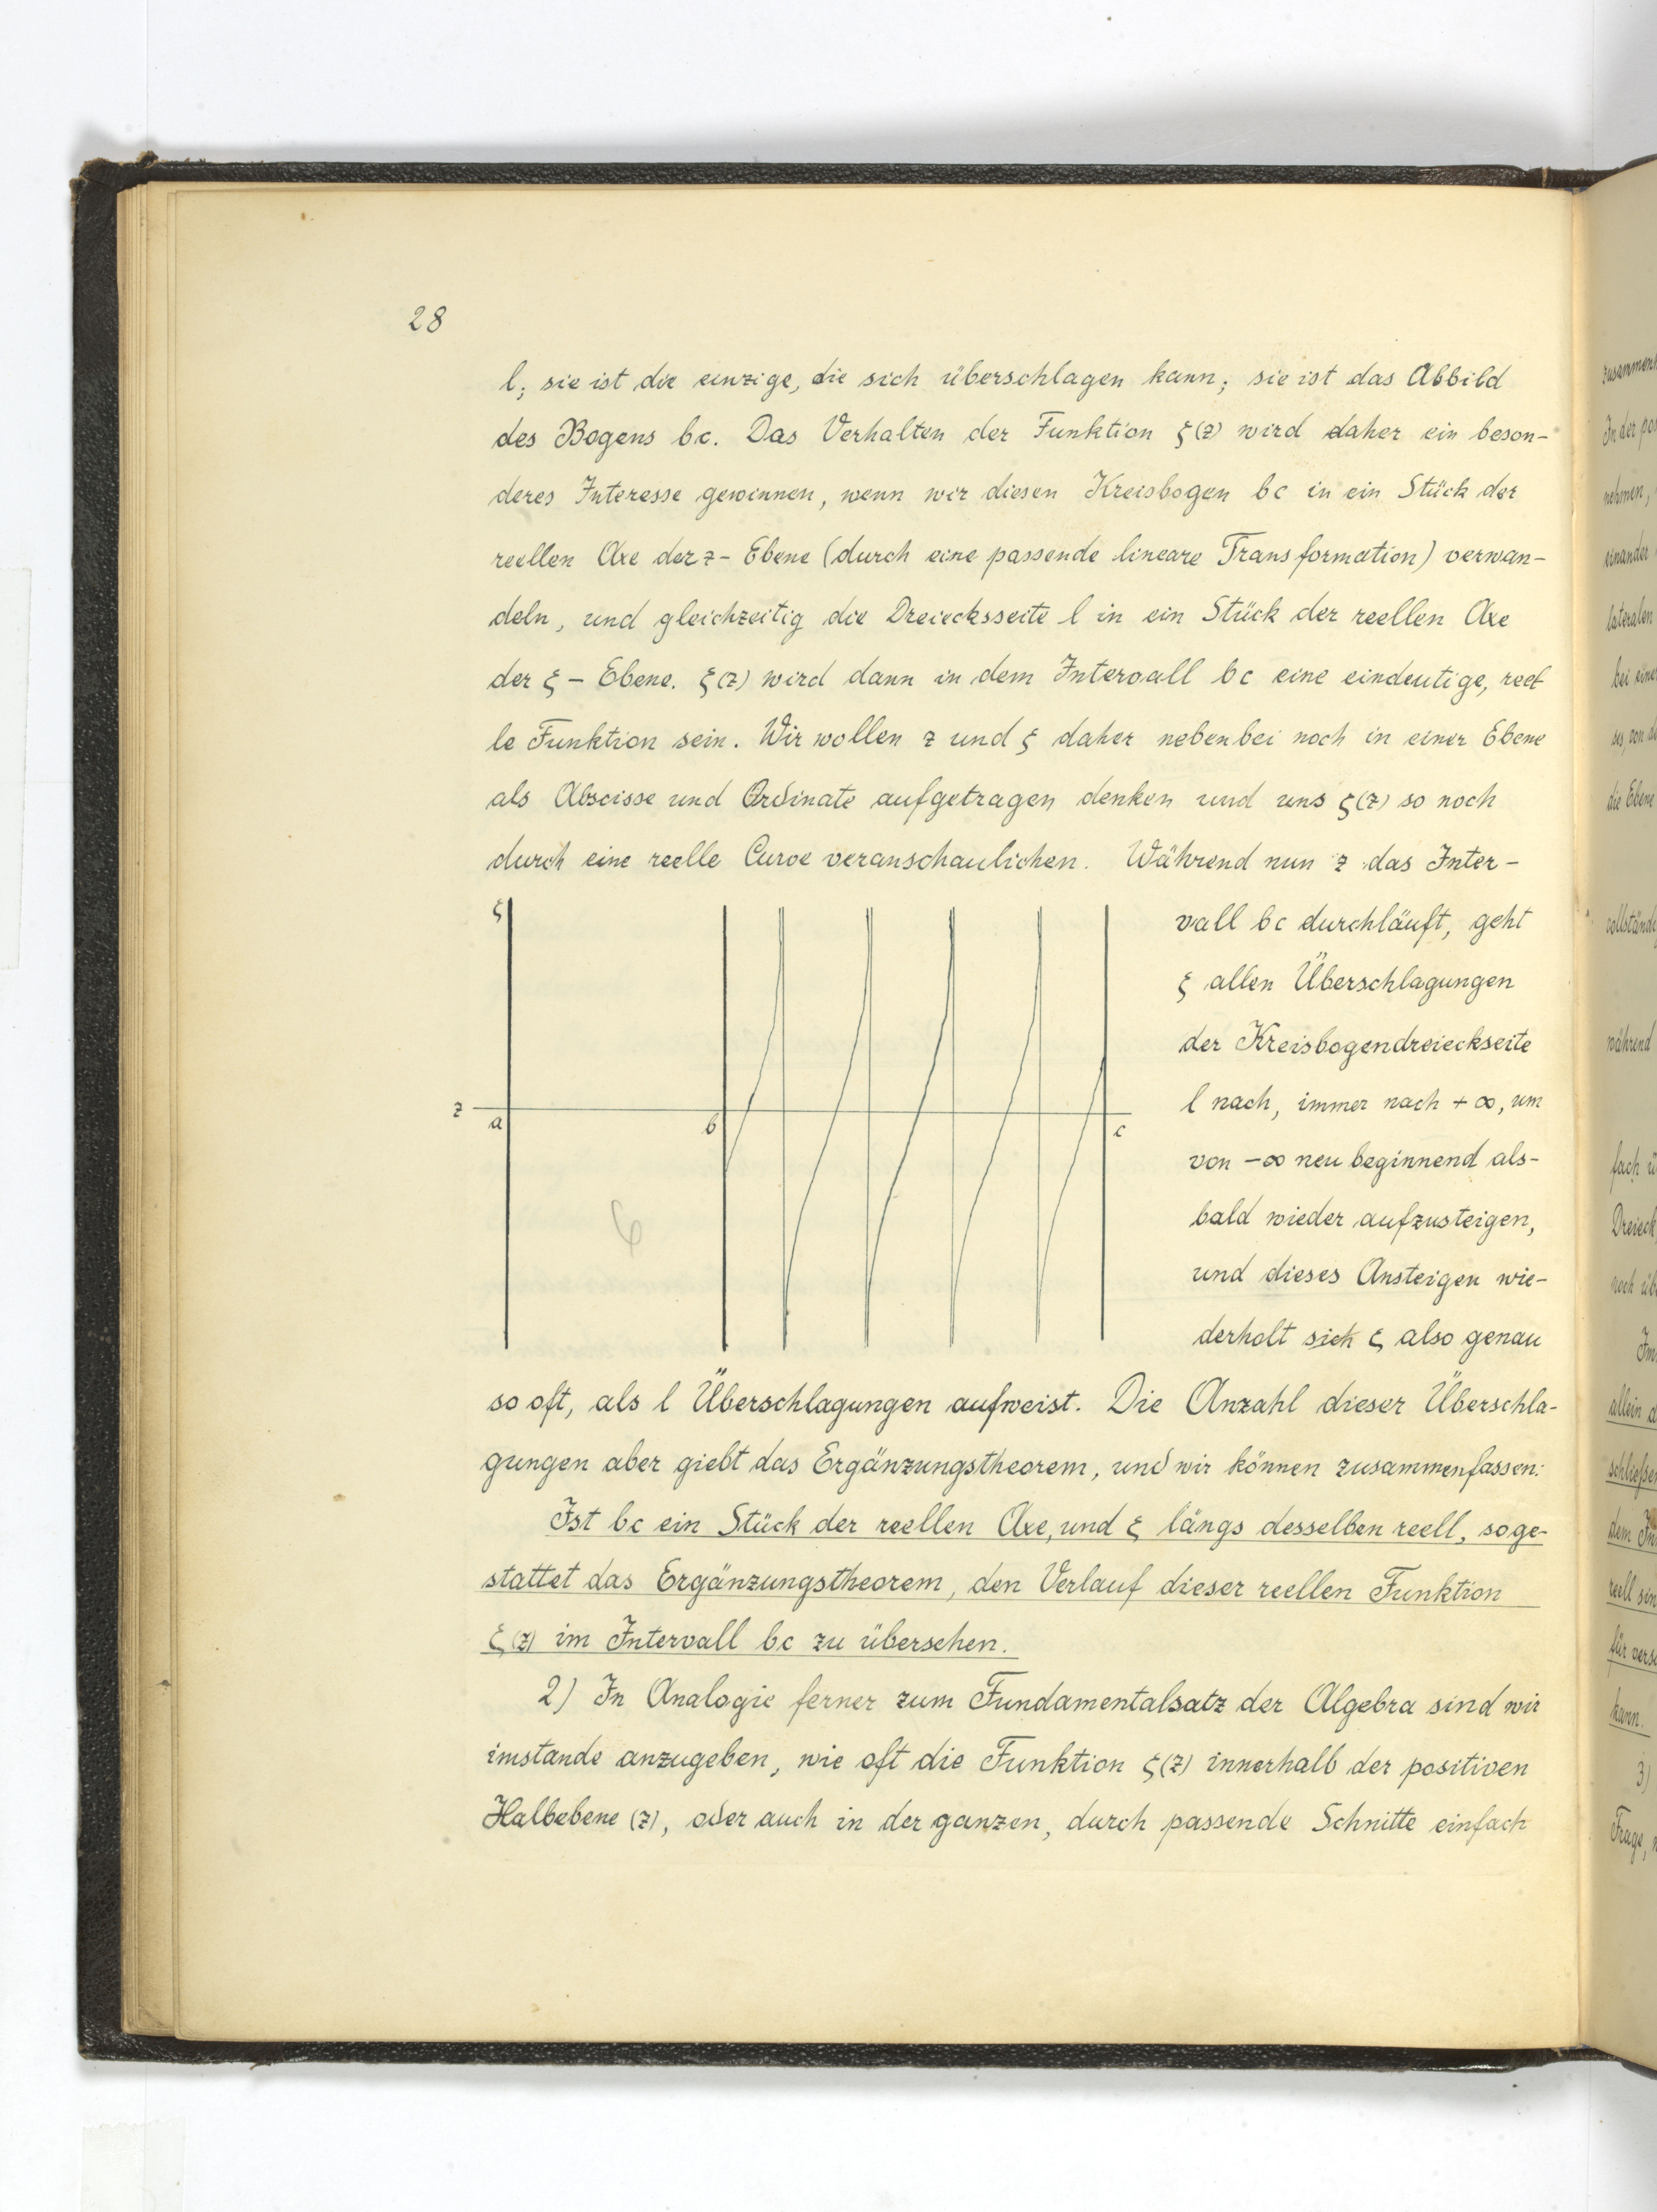 28
l; sie ist die einzige, die sich überschlagen kann; sie ist das Abbild
des Bogens bc. Das Verhalten der Funktion ξ(z) wird daher ein beson-
deres Interesse gewinnen, wenn wir diesen Kreisbogen bc in ein Stück der
reellen Axe der z-Ebene (durch eine passende lineare Transformation) verwan-
deln, und gleichzeitig die Dreiecksseite l in ein Stück der reellen Axe
der ξ-Ebene. ξ(z) wird dann in dem Intervall bc eine eindeutige, reel
le Funktion sein. Wir wollen z und ξ daher nebenbei noch in einer Ebene
als Abscisse und Ordinate aufgetragen denken und uns ξ(z) so noch
durch eine reelle Curve veranschaulichen. Während nun z das Inter-
ξ
z
a
b
c
vall bc durchläuft, geht
ξ allen Überschlagungen
der Kreisbogendreieckseite
l nach, immer nach +∞, um
von -∞ neu beginnend als-
bald wieder aufzusteigen,
und dieses Ansteigen wie-
derholt sich ξ also genau
so oft, als l Überschlagungen aufweist. Die Anzahl dieser Überschla-
gungen aber giebt das Ergänzungstheorem, und wir können zusammenfassen:
Ist bc ein Stück der reellen Axe, und ξ längs desselben reell, so ge-
stattet das Ergänzungstheorem, den Verlauf dieser reellen Funktion
ξ(z) im Intervall bc zu übersehen.
2) In Analogie ferner zum Fundamentalsatz der Algebra sind wir
imstande anzugeben, wie oft die Funktion ξ(z) innerhalb der positiven
Halbebene (z), oder auch in der ganzen, durch passende Schnitte einfach